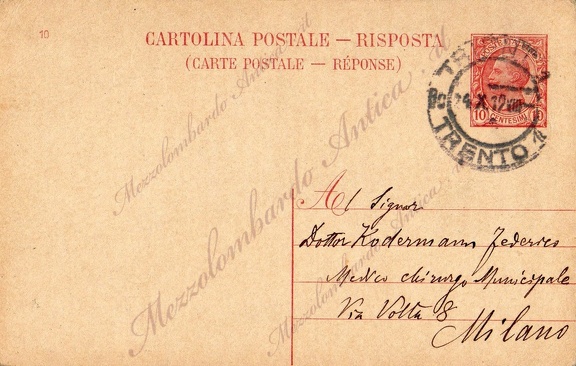 10
CARTOLINA POSTALE — RISPOSTA
(CARTE POSTALE — RÉPONSE)
10 CENTESIMI 10
TRENTO
Al Signor
Dottor Kodermann Federico
Medico chirurgo Municipale
Via Volta 8
Milano
Mezzolombardo Antica
Mezzolombardo Antica
Mezzolombardo Antica